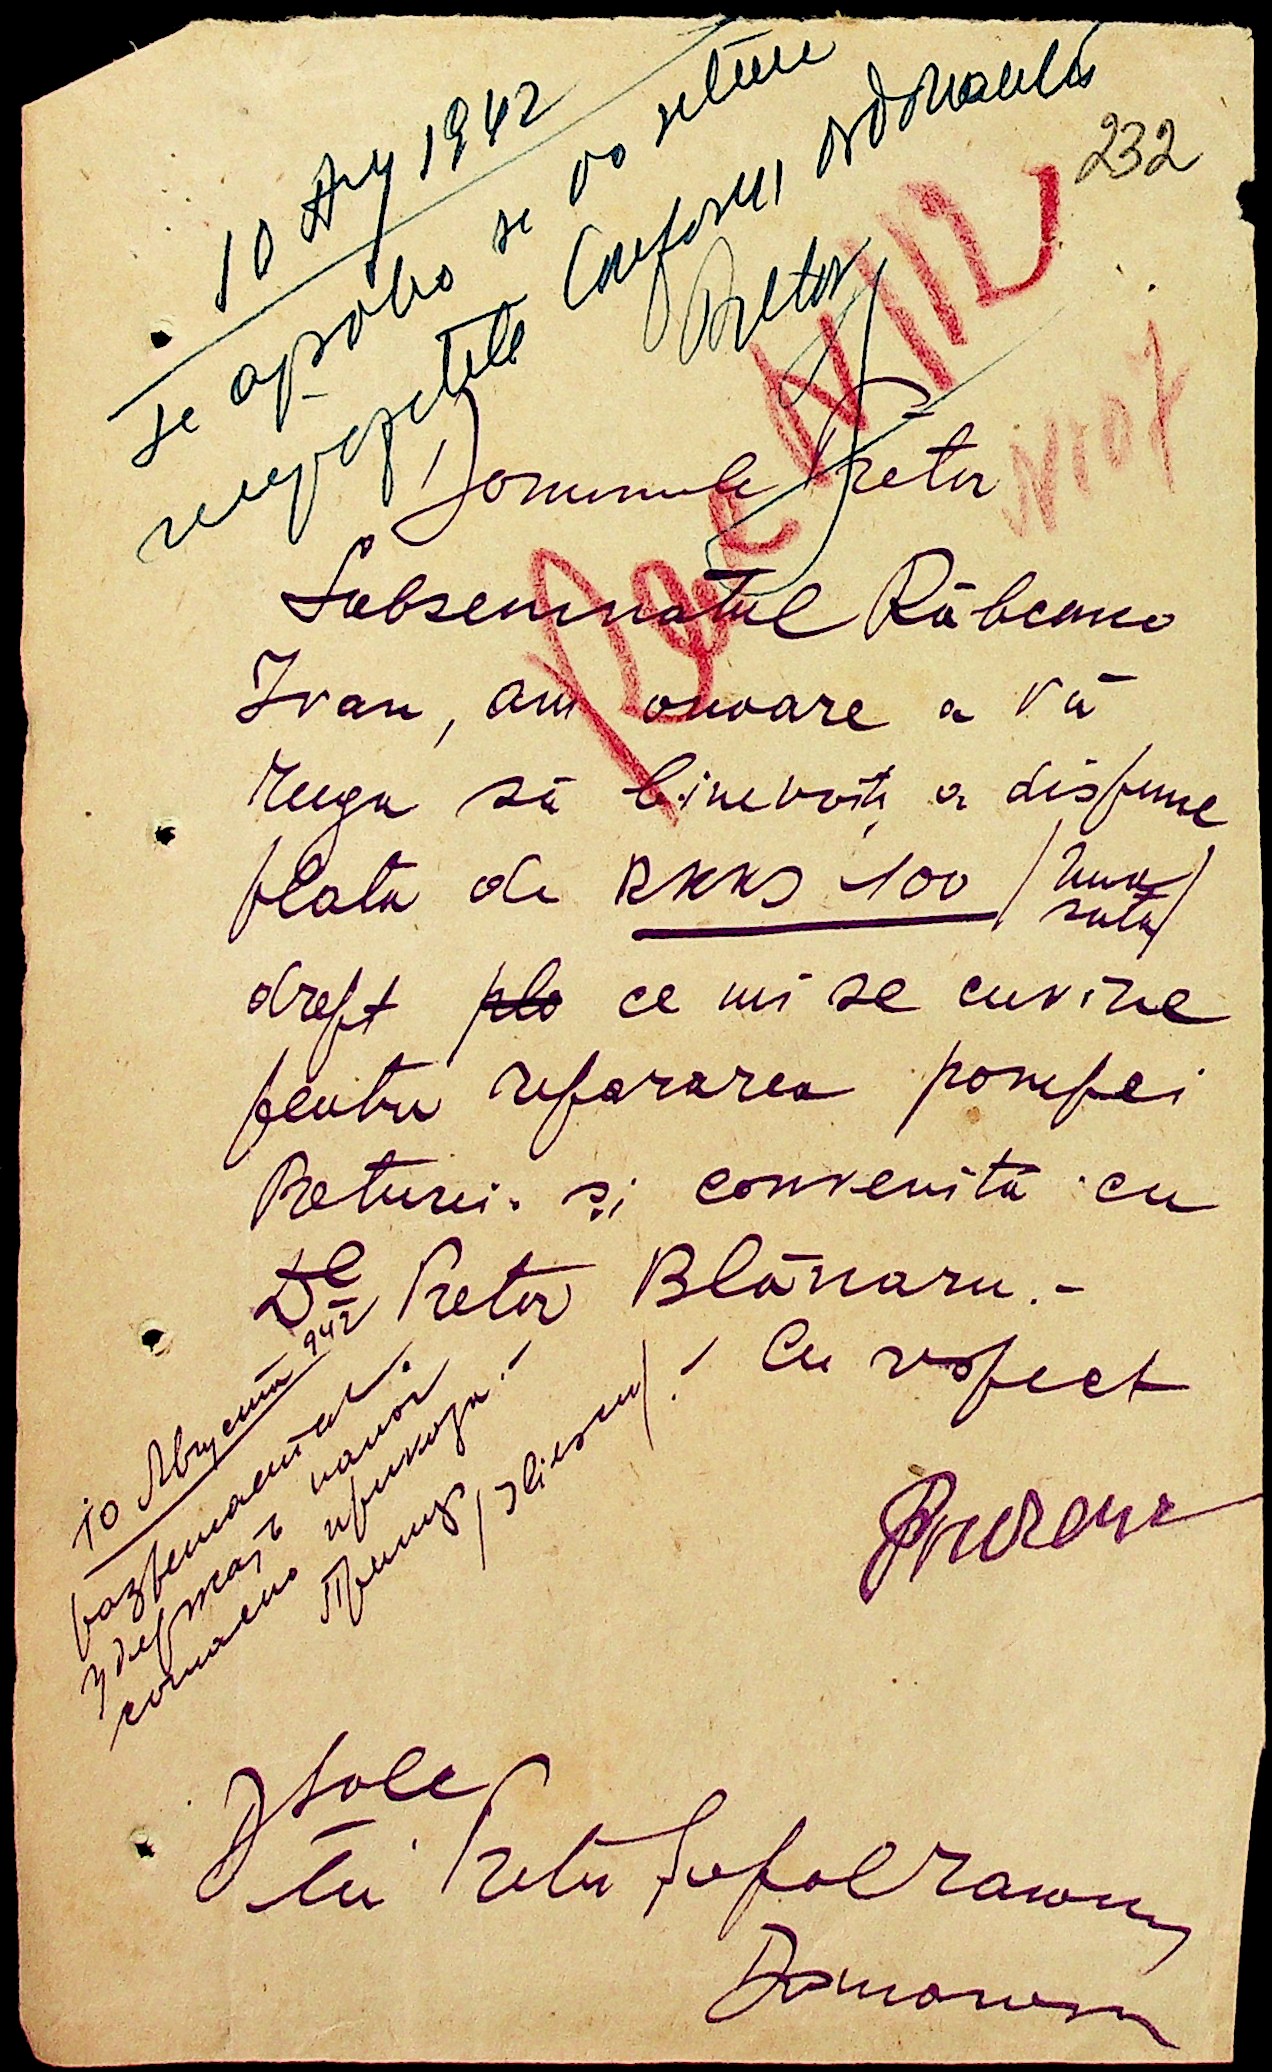 232
10 Aug 1942
se aproba se va retine
impozitele Conform ordonantei
Pretor
Domnule Pretor
Subsemnatul Râbcenco
Ivan, am onoare a vă
ruga să binevoiți a dispune
plata de RKKS 100 / una sută /
drept plo ce mi se cuvine
pentru repararea pompei
Preturei. și convenită cu
Dl Pretor Blănaru. -
Cu respect
10 Августа 942
удержатъ налог
согласно приказа
D Sale
Lui Pretor Șeful Raionului